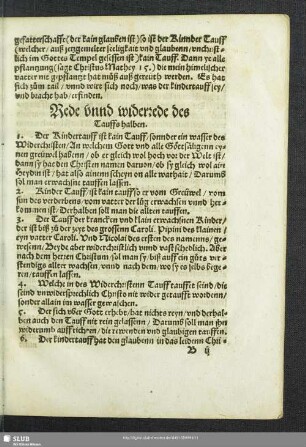 gefatterschafft (der kain glauben ist) so ist der Kleinder Tauff
(welcher / auß zengemelter seeligkait vnd glaubenn / vnchrist-
lich im Gottes Tempel gesessen ist) kain Tauff. Dann ye alle
pflantzung (sagt Christus Mathey 15.) die mein himelischer
vatter nit gepflantzt hat müß auß gereüth werden. Es hat
sich zům tail / vnnd wirt sich noch / was der kindertauff sey /
vnd brache hab / erfinden.
Rede vnnd widerrede des
Tauffs halben.
1. Der Kindertauff ist kain Tauff / sonder ein wasser des
Widerchristen / An welchem Gott vnd alle Gotsäligen ey-
nen grewel haben / ob er gleich wol hoch vor der Welt ist /
dann sy hat den Christen namen daruon / ob sy gleich wol ain
Heydin ist / hat also ainn schein on alle warhait / Darumb
sol man erwachsne tauffen lassen.
2. Kinder Tauff / ist kain tauff so er vom Grewel / vom
sun des verderbens / vnd vatter der lüg erwachsen vnnd her-
kommen ist. Derhalben sol man die alten tauffen.
3. Der Tauff der krancken vnd klain erwachsnen Kinder /
der ist biß zů der zeyt des grossenn Caroli. Pipini des klainen /
eyn vatter Caroli. Vnd Nicolai des ersten des namenns / ge-
wesenn / Beyde aber widerchristlich vnnd vast schedlich. Aber
nach dem herren Christum / sol man sy biß auff ein gůts ver-
stendigs alter wachsen / vnnd nach dem / wo sy es selbs bege-
ren / tauffen lassen.
4. Welche in des Widerchristenn Tauff taufft seind / die
seind vnwidersprechlich Christo nit wider getaufft wordenn /
sonder allain im wasser gewaschen.
5. Der sich über Gott erhebt / hat nichts reyn / vnd derhal-
ben auch den Tauff nit rein gelassenn / Darumb soll man jhn
widerumb auffrichten / die rewenden vnd glaubigen tauffen.
6. Der kindertauff hat den glaubenn in das leiden Chri-
B ij
SLUB